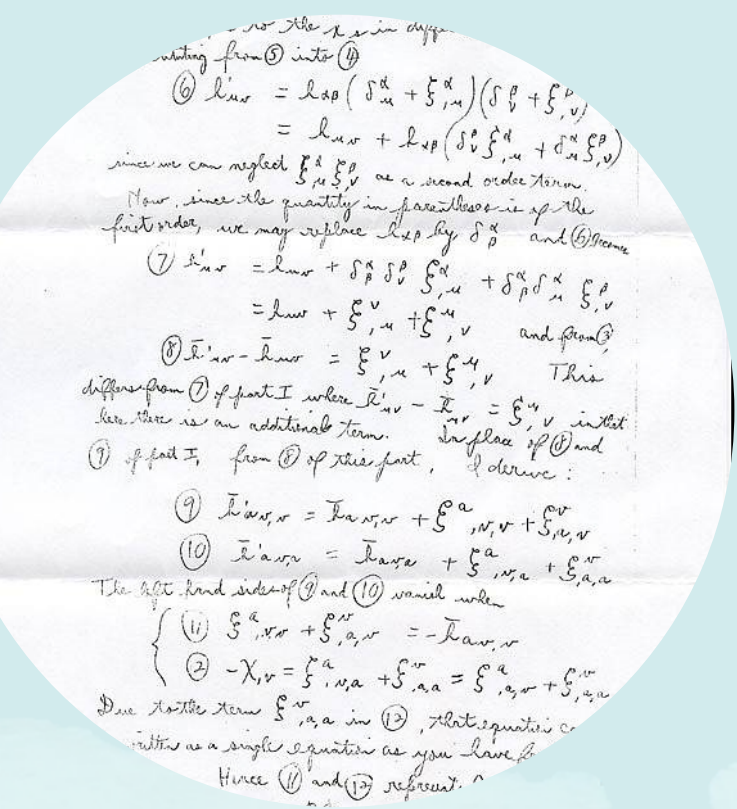 to the x s in diffe
from ⑤ into ④
⑥ h'μν = hαβ ( δ^α_μ + ξ^α_,μ ) ( δ^β_ν + ξ^β_,ν )
= hμν + hαβ ( δ^β_ν ξ^α_,μ + δ^α_μ ξ^β_,ν )
since we can neglect ξ^α_,μ ξ^β_,ν as a second order term.
Now, since the quantity in parentheses is of the
first order, we may replace hαβ by δ^α_β and ⑥ becomes
⑦ h'μν = hμν + δ^α_β δ^β_ν ξ^α_,μ + δ^α_β δ^α_μ ξ^β_,ν
= hμν + ξ^ν_,μ + ξ^μ_,ν and from ③,
⑧ h̄'μν - h̄μν = ξ^ν_,μ + ξ^μ_,ν This
differs from ⑦ of part I where h̄'μν - h̄μν = ξ^μ_,ν in that
here there is an additional term. In place of ⑧ and
⑨ of part I, from ⑧ of this part, I derive :
⑨ h̄'aν,ν = h̄aν,ν + ξ^a_,ν,ν + ξ^ν_,a,ν
⑩ h̄'aν,a = h̄aν,a + ξ^a_,ν,a + ξ^ν_,a,a
The left hand sides of ⑨ and ⑩ vanish when
⑪ ξ^a_,νν + ξ^ν_,a,ν = - h̄aν,ν
② -χ,ν = ξ^a_,ν,a + ξ^ν_,aa = ξ^a_,a,ν + ξ^ν_,a,a
Due to the term ξ^ν_,a,a in ⑫, that equation
as a single equation as you have
Hence ⑪ and ⑫ represent